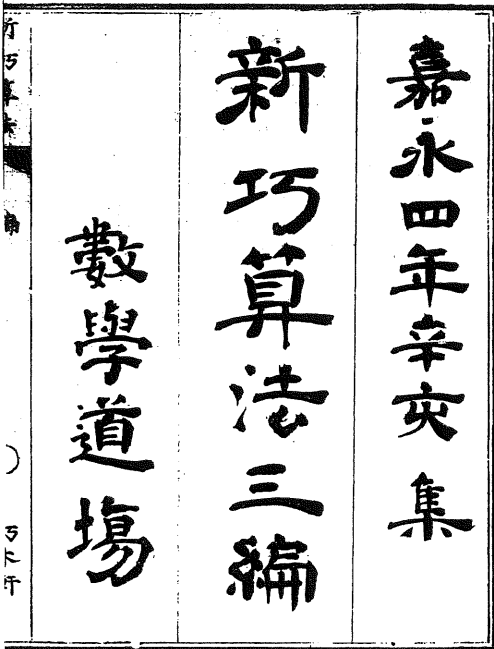 嘉永四年辛亥集
新巧算法三編
數學道場